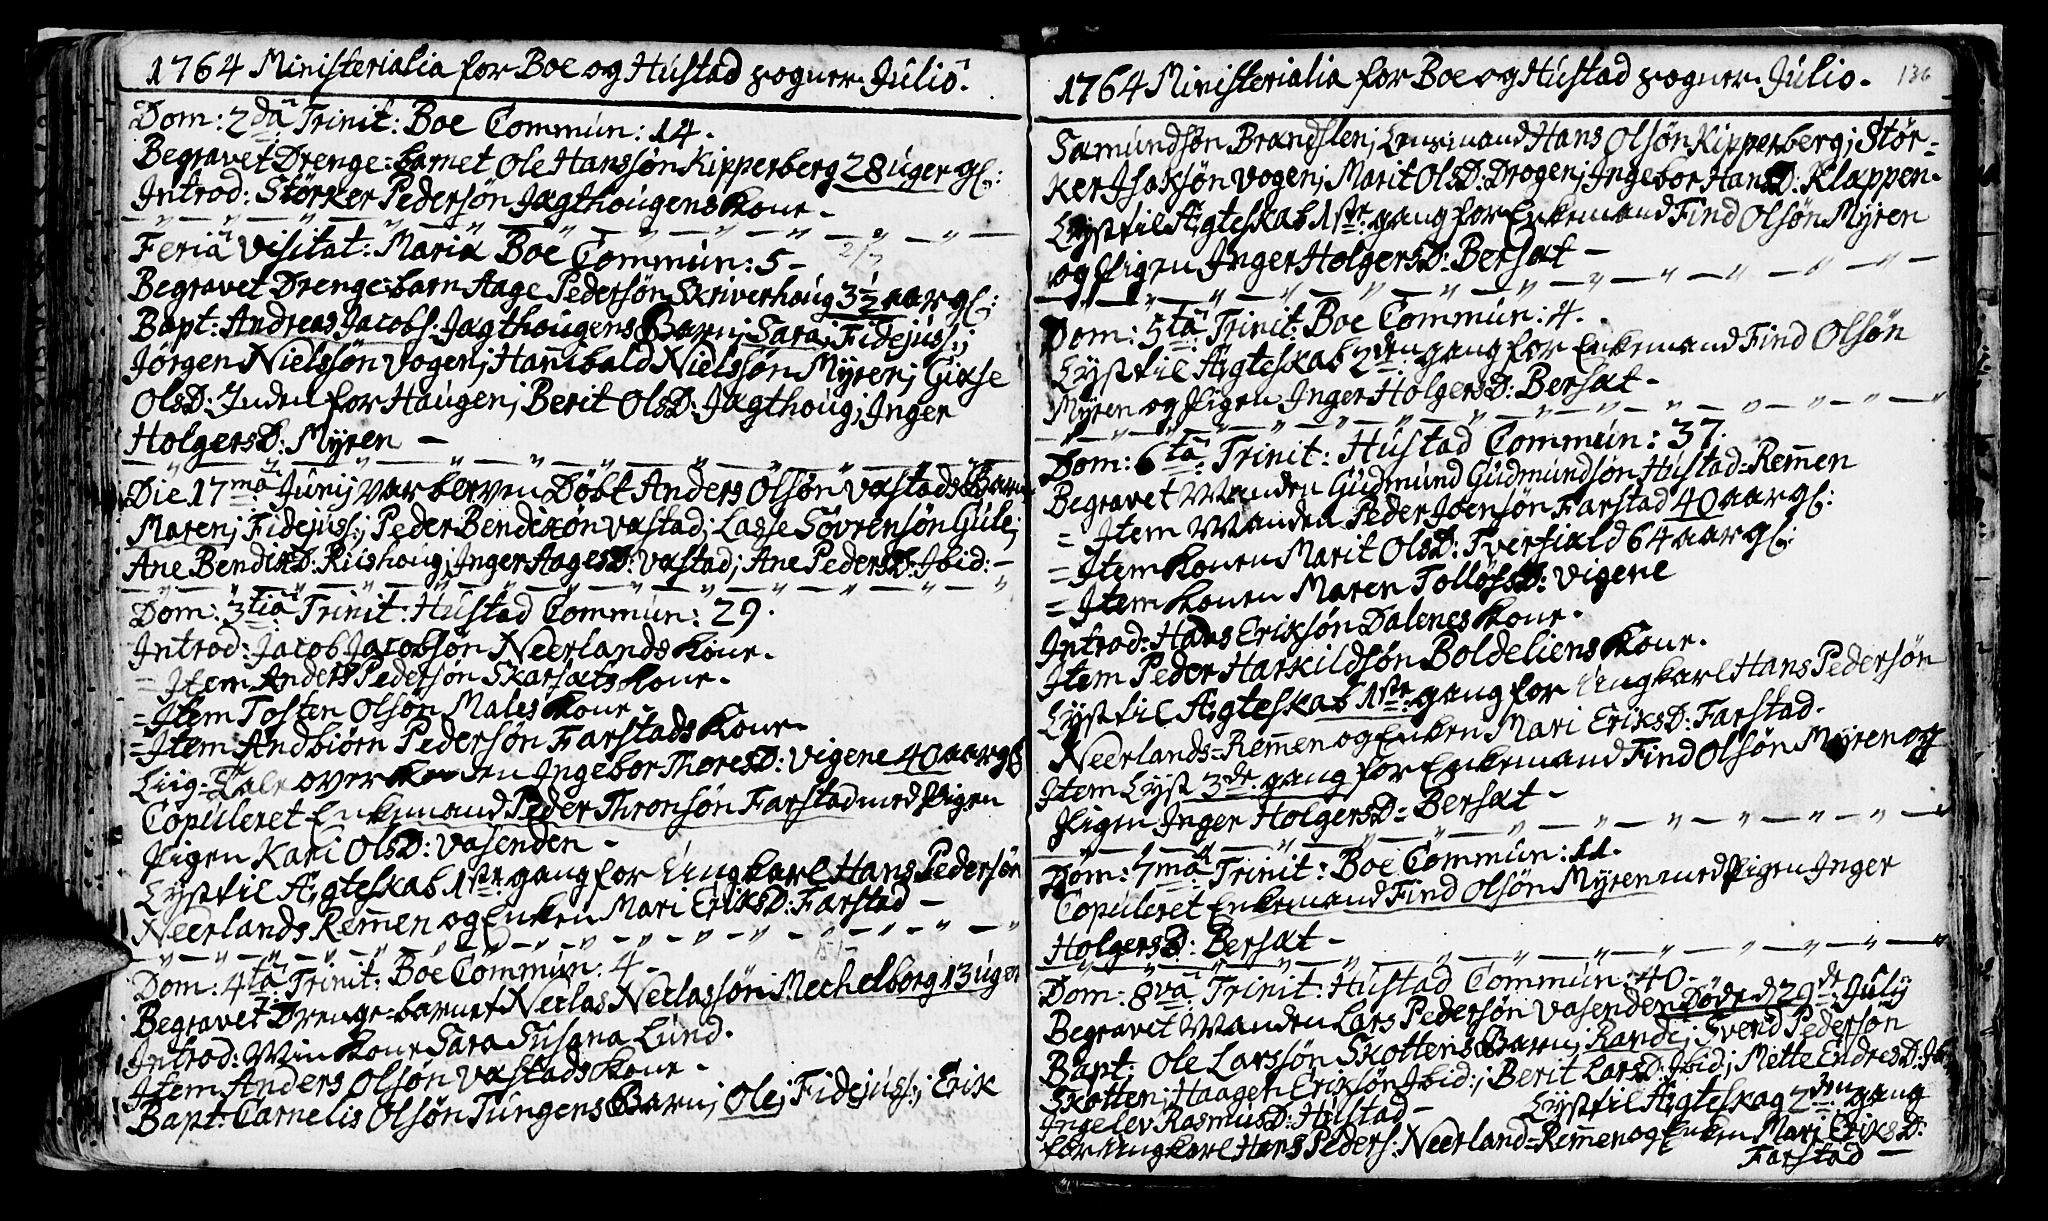 1764 Ministerialia for Boe og Hústad sogner. Júlio.
Dom: 2da Trinit: Boe Commún: 14.
Begravet Drenge=barnet Ole Hanssøn Kipperberg 28 úger gl:
Introd: Størker Pedersøn Jagthoúgens Kone.
Feria Visitat: Maria Boe Commún: 5 - 2/7
Begravet Drenge=barn Aage Pedersøn Skriverhoúg 3 1/2 aar gl:
Bapt: Andreas Jacobs: Jagthoúgens Barn; Sara; Fidejús:;
Jørgen Nielssøn Vogen; Hanibald Nielssøn Myren; Giøse
OlsD: Inden for Haúgen; Berit OlsD: Jagthoúg; Inger
HolgersD: Myren -
Die 17ma Júnij var bleven Døbt Anders Olsøn Vastads Barn
Maren; Fidejús:; Peder Bendixøn Vastad; Lasse Søvrensøn Gúle;
Ane BendixD: Riishoúg; Inger AagesD: Vastad; Ane PedersD: Ibid: -
Dom: 3tia Trinit: Hústad Commún: 29.
Introd: Jacob Jacobsøn Neerlands Kone.
= Item Anders Pedersøn Skarsæts Kone.
= Item Tosten Olsøn Males Kone -
= Item Andbiørn Pedersøn Farstads Kone.
Liig=Tale over Konen Ingebor ThoresD: Vigene 40 aar gl:
Copúleret Enkemand Peder Thronsøn Farstad med Pigen
Pigen Kari OlsD: Vasenden -
Lyst til Ægteskab 1ste gang for Ungkarl Hans Pedersøn
Neerlands Remen og Enken Mari EriksD: Farstad -
Dom: 4ta Trinit: Boe Commún: 4 -
Begravet Drenge=barnet Neclas Neclassøn Mechelborg 13 úger
Introd: Min Kone Sara Súsana Lúnd.
Item Anders Olsøn Vastads Kone -
Bapt: Carnelis Olsøn Túngens Barn; Ole; Fidejús:; Erik
1764 Ministerialia for Boe og Hústad sogner. Júlio. 136
Samúndsøn Brandslen; Lensmand Hans Olsøn Kipperberg; Stør=
ker Isaksøn Vogen; Marit OlsD: Drogen; Ingebor HansD: Klappen.
Lyst til Ægteskab 1ste gang for Enkemand Find Olsøn Myren
og Pigen Inger HolgersD: Bersæt -
Dom: 5ta Trinit: Boe Commún: 4.
Lyst til Ægteskab 2den gang for Enkemand Find Olsøn
Myren og Pigen Inger HolgersD: Bersæt -
Dom: 6ta Trinit: Hústad Commún: 37.
Begravet Manden Gúdmúnd Gúdmúndsøn Hústad=Remen
= Item Manden Peder Joensøn Farstad 40 aar gl:
= Item Konen Marit OlsD: Tverfiæld 64 aar gl:
= Item Konen Maren TolløfsD: Vigene
Introd: Hans Eriksøn Dalenes Kone.
Item Peder Harkildsøn Boldeliens Kone.
Lyst til Ægteskab 1ste gang for Ungkarl Hans Pedersøn
Neerlands=Remen og Enken Mari EriksD: Farstad.
Item Lyst 3de gang for Enkemand Find Olsøn Myren og
Pigen Inger HolgersD= Bersæt -
Dom: 7ma Trinit: Boe Commún: 11.
Copúleret Enkemand Find Olsøn Myren med Pigen Inger
HolgersD: Bersæt -
Dom: 8va Trinit: Hústad Commún: 40 -
Begravet Manden Lars Pedersøn Vasenden Døde d 29de Júly
Bapt: Ole Larssøn Skottens Barn; Randi; Svend Pedersøn
Skotten; Haagen Eriksøn Ibid:; Berit LarsD: Ibid; Mette EndresD: Ib
Ingelev RasmúsD: Hústad - Lyst til Ægteskag 2den gang
for Ungkarl Hans Peders: Neerland=Remen og Enken Mari EriksD:
Farstad -